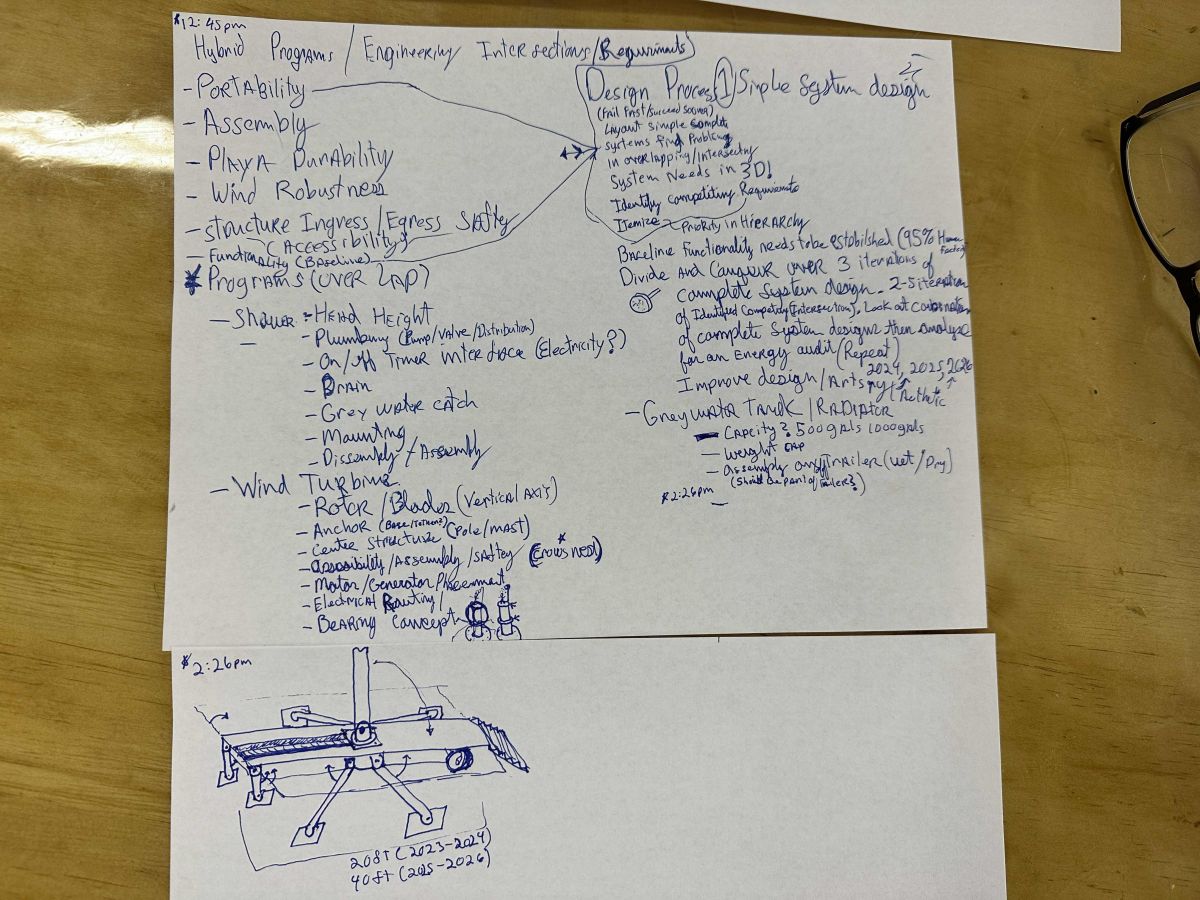 12:45pm
Hybrid Programs / Engineering Intersections/Requirments)
- PORTAbility
- Assembly
- PlAyA DurAbility
- Wind Robustness
- structure Ingress/Egress SAfty
(Accessibility)
- Functionality (BAseline)
* Programs (OVER LAP)
- Shower - HeAd Height
- Plumbing (Pump/VAlve/Distribution)
- On/off Timer interface (Electricity?)
- DrAin
- Grey wAter cAtch
- Mounting
- Dissembly / Assembly
- Wind Turbine
- Rotor / Blades (VerticAl AXIS)
- Anchor (Base/Tethers?)
- Center structure (pole/mAst)
- Assembly/sAftey (Crows nest)
- Motor/GenerAtor PlAcement
- ElectricAl Routing/
- BeAring Concept
Design Process 1/Simple System design
(FAil FAst/Succeed Sooner)
LAyout simple complete
systems find Problems
in overlapping/Intersecting
System Needs in 3D!
Identify competiting Requirments
Itemize - Priority in HierARCHY
BAseline functionAlity needs to be estAbilshed (95% Human
factors)
Divide And Conquer over 3 iterations of
complete System design - 2-5 iteration
of Identified Competing (Intersection), Look at
of complete System designs then AnAlyze
for an Energy audit (Repeat)
2024, 2025, 2026
Improve design/Artsmy/Aethetic
- Greywater TANK / RADIATOR
- CApAcity? 500gals 1000gals
- weight
- assembly on/off TrAiler (wet/Dry)
(Should be part of Trailer?)
2:26pm
2:26pm
20ft (2023-2024)
40ft (2025-2026)